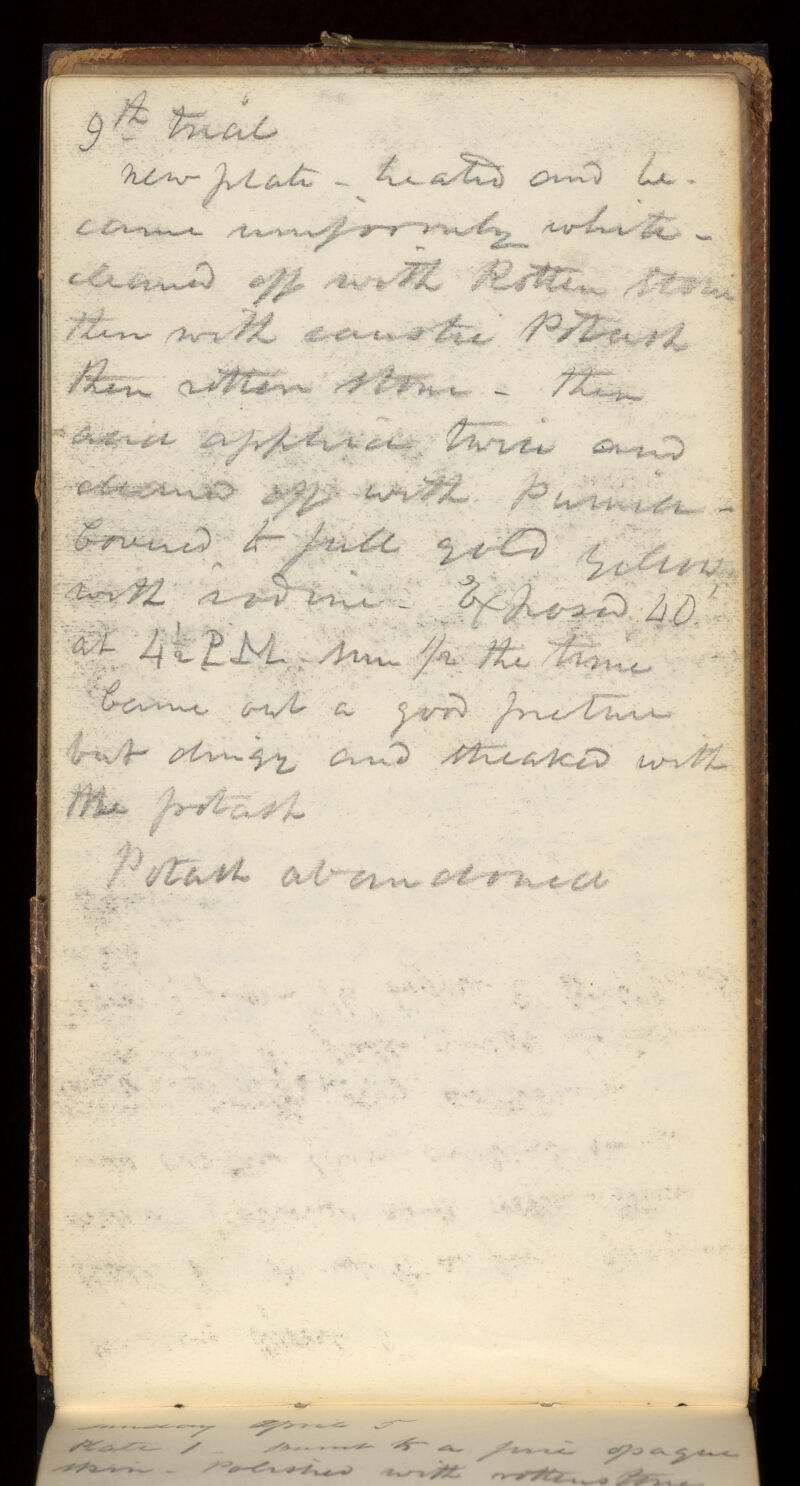 9th trial
new plate - heated and be-
came uniformly white -
cleaned off with Rotten stone
then with caustic Potash
then rotten stone - then
acid applied twice and
cleaned off with Pumice -
Covered to full gold yellow
with iodine - Exposed 40
at 4½ P.M. sun 1/2 the time
Came out a good picture
but dingy and streaked with
the potash
Potash abandoned
Sunday April 5
Plate 1 - burnt to a fine opaque
skin - Polished with rottenstone